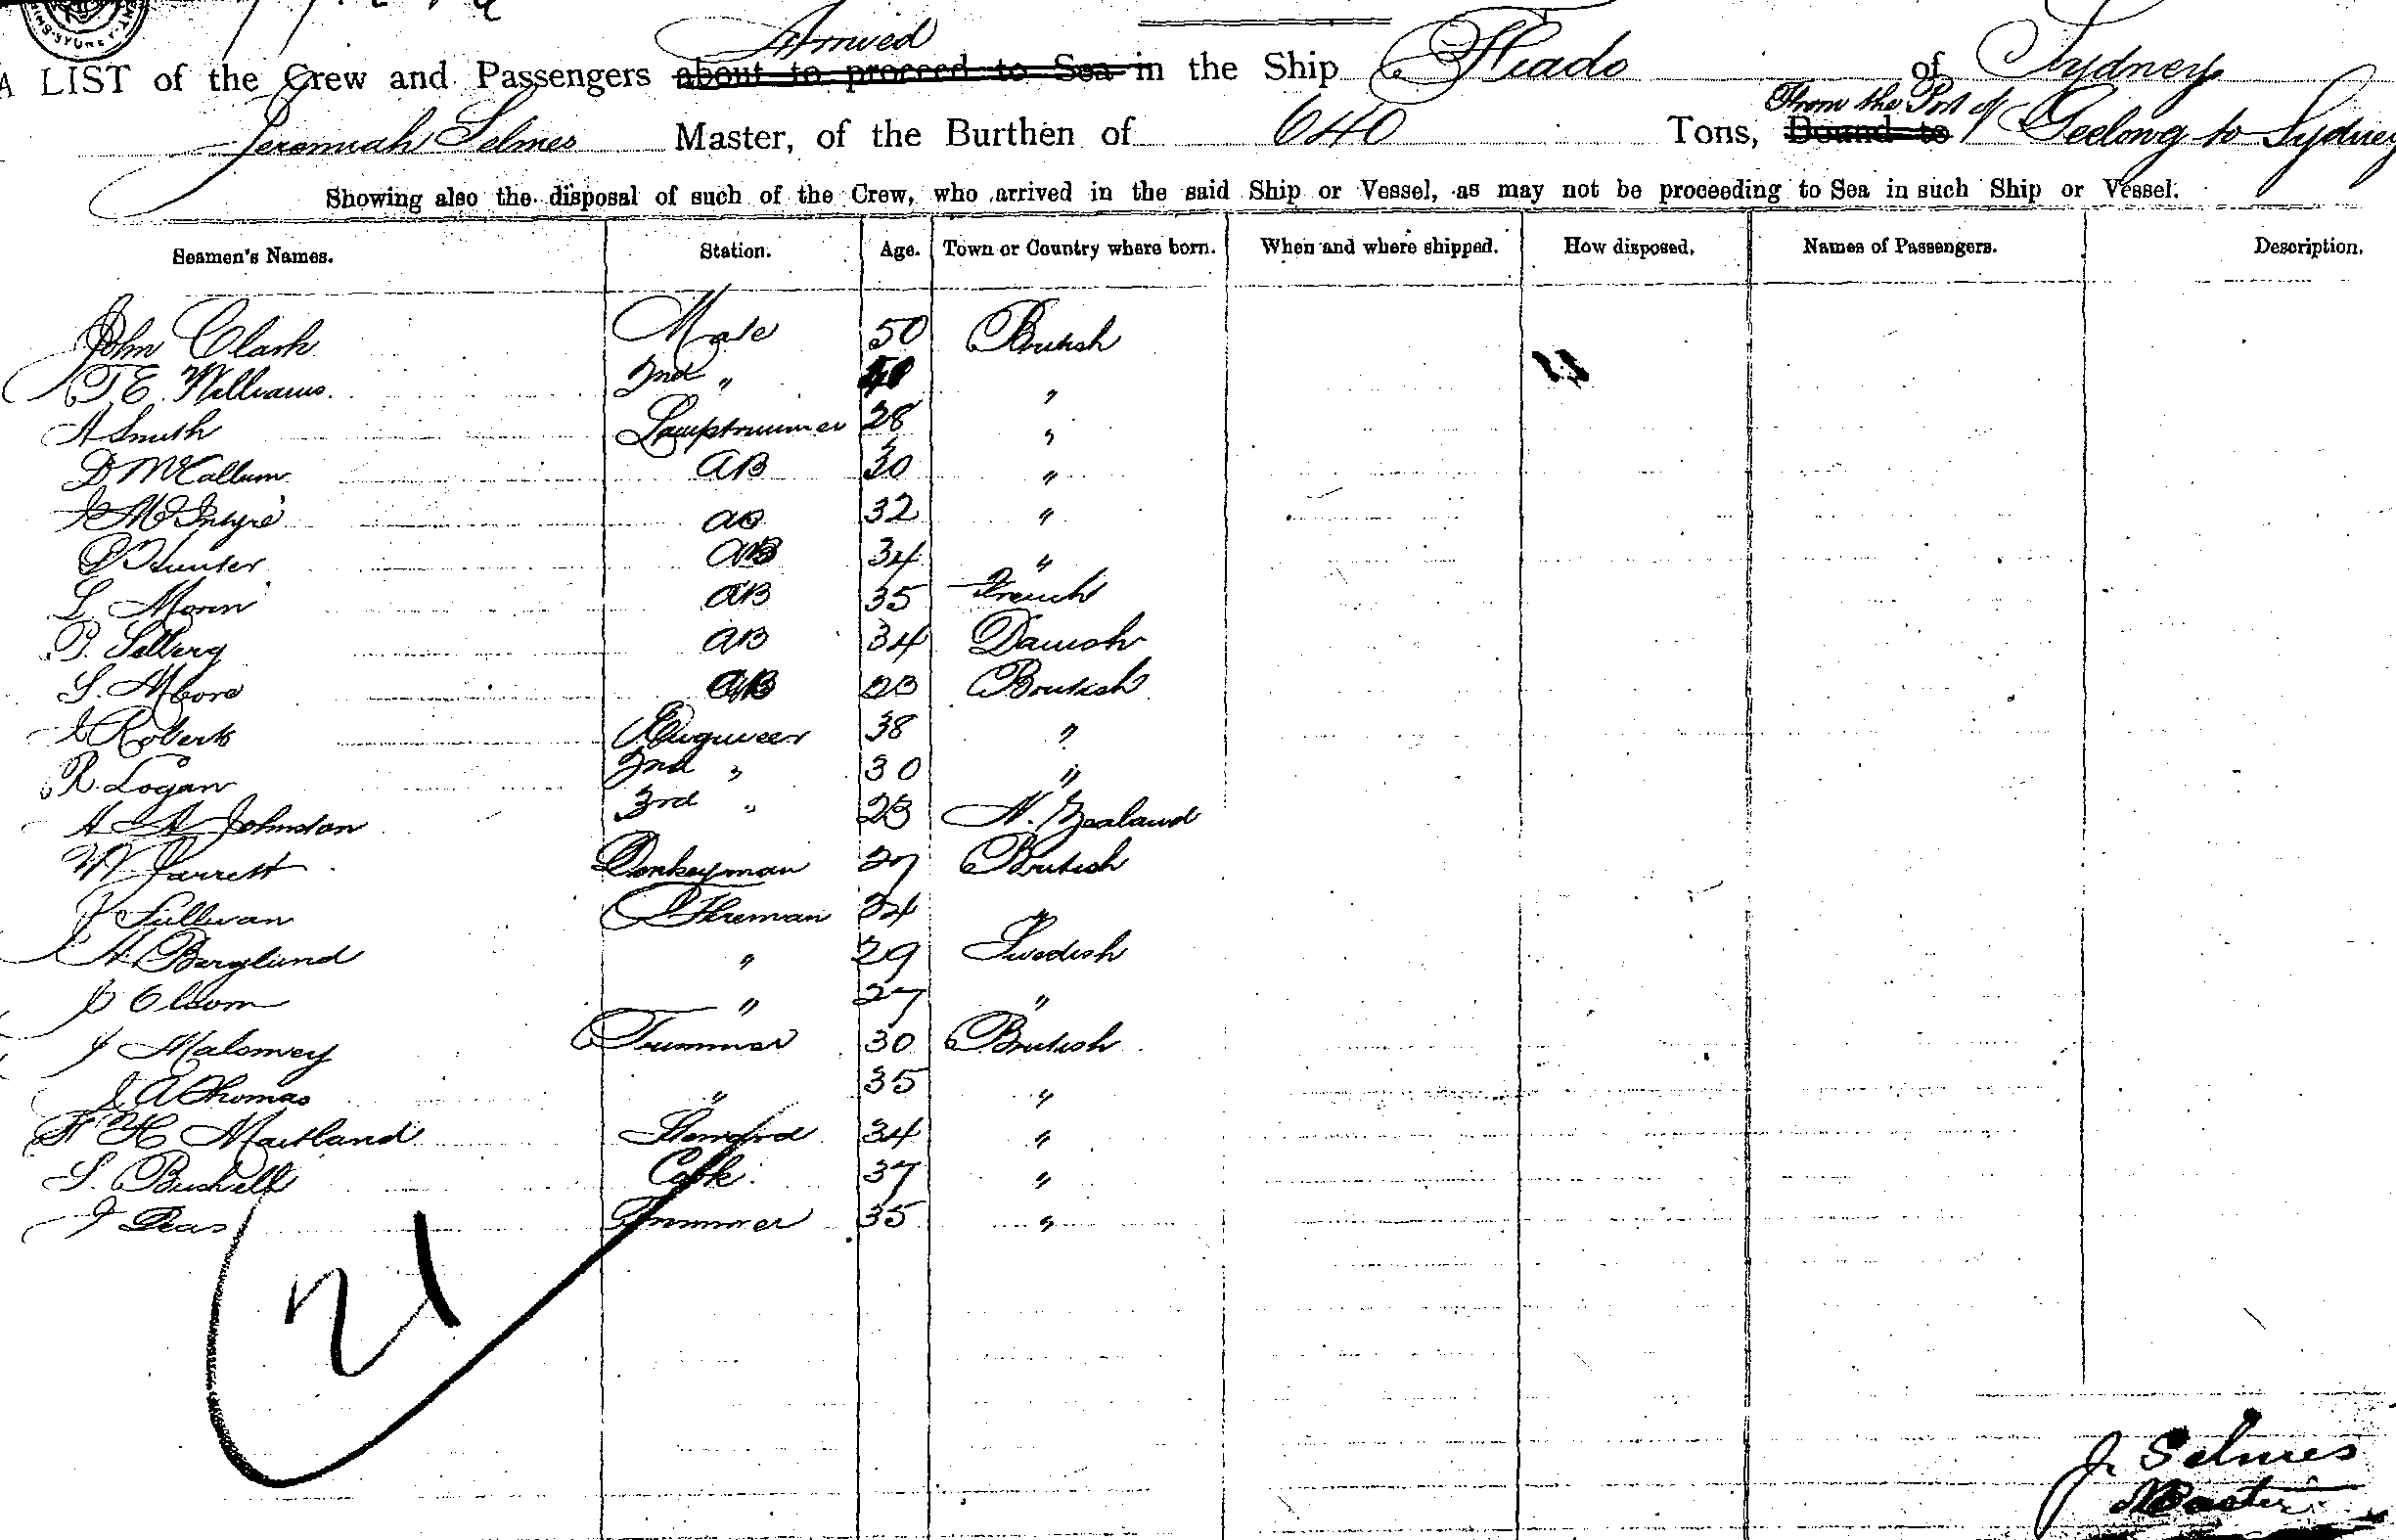 Arrived
A LIST of the Crew and Passengers about to proceed to Sea in the Ship Fiado of Sydney
Jeremiah Selmes Master, of the Burthen of 640 Tons, Bound to From the Port of Geelong to Sydney
Showing also the disposal of such of the Crew, who arrived in the said Ship or Vessel, as may not be proceeding to Sea in such Ship or Vessel.
Seamen's Names. Station. Age. Town or Country where born. When and where shipped. How disposed. Names of Passengers. Description.
John Clark Mate 50 British
T E Williams 2nd " "
A Smith Lamptrimmer 28 "
D McCallum AB 30 "
J McIntyre AB 32 "
P Hunter AB 34 "
L Morin AB 35 French
P. Selberg AB 34 Danish
S. Moore AB British
J Roberts Engineer 38 "
R. Logan 2nd " 30 "
A Johnston 3rd " 23 N. Zealand
W Jarrett Donkeyman 27 British
J Sullivan Fireman 24 "
A Berglund " 29 Swedish
Olsom " 27 "
J Maloney Trimmer 30 British
J A Thomas " 35 "
F H Maitland Steward 34 "
S. Bushell Cook 37 "
J Deas Trimmer 35 "
21
J. Selmes
Master